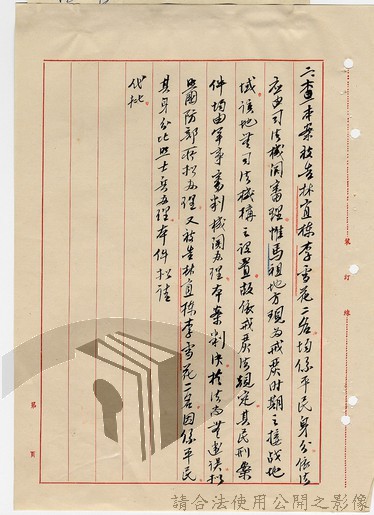 二、查本案被告林宜棟李雪花二名均係平民身分依法
應由司法機關審理惟馬祖地方現為戒嚴時期之接戰地
域該地無司法機構之設置故依戒嚴法規定其民刑案
件均由軍事審判機關辦理本案判決於法尚無違誤擬
照國防部所擬辦理又被告林宜棟李雪花二名因係平民
其身分比照士兵辦理本件擬請
代批
裝訂線
第 頁
請合法使用公開之影像